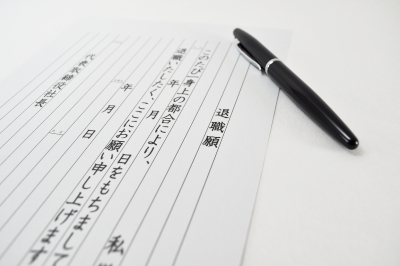 退職願
私
このたび一身上の都合により、　年　月　日をもちまして
退職いたしたく、ここにお願い申し上げます
年　月　日
代表取締役社長